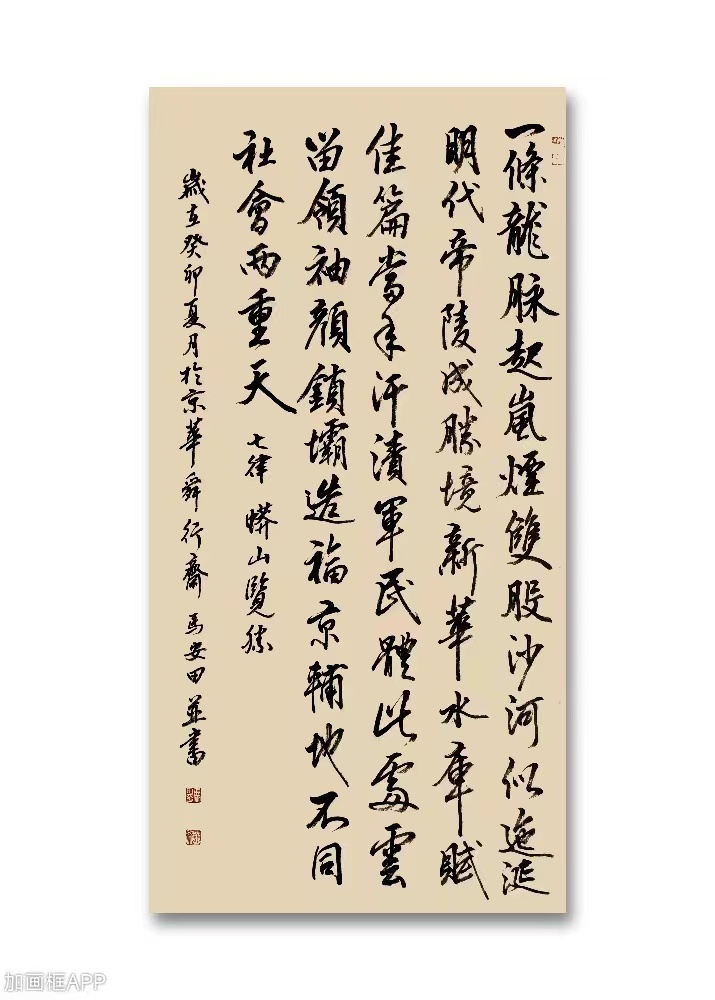 一條龍脉起嵐煙雙股沙河似迤涎
明代帝陵成勝境新華水庫賦
佳篇當年汗漬軍民體此處雲
留領袖顏鎖壩造福京輔地不同
社會兩重天
七律 蟒山覽勝
歲在癸卯夏月於京華舜行齋馬安田並書
加画框APP